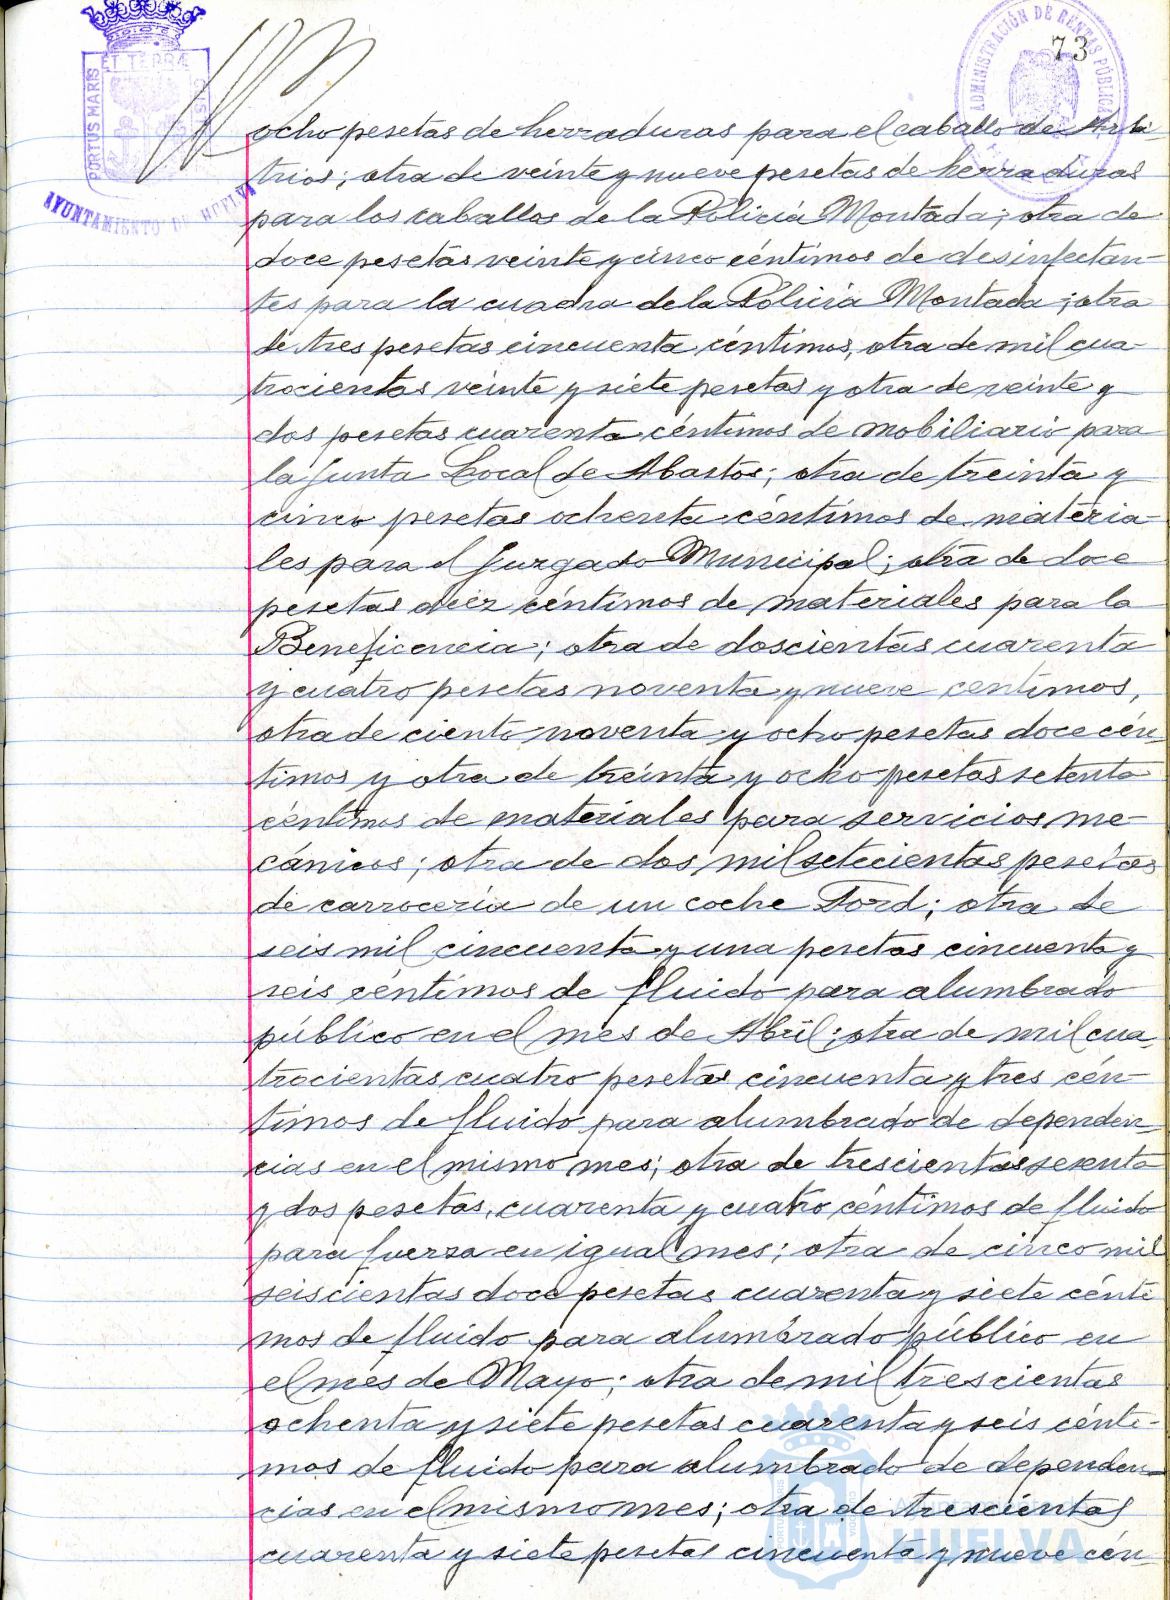 73
PORTUS MARIS ET TERRÆ CUSTODIA
AYUNTAMIENTO DE HUELVA
ADMINISTRACIÓN DE RENTAS PÚBLICAS
ocho pesetas de herraduras para el caballo de Arbi
trios; otra de veinte y nueve pesetas de herraduras
para los caballos de la Policía Montada; otra de
doce pesetas veinte y cinco céntimos de desinfectan-
tes para la cuadra de la Policía Montada; otra
de tres pesetas cincuenta céntimos, otra de mil cua-
trocientas veinte y siete pesetas y otra de veinte y
dos pesetas cuarenta céntimos de mobiliario para
la Junta Local de Abastos; otra de treinta y
cinco pesetas ochenta céntimos de materia-
les para el Juzgado Municipal; otra de doce
pesetas diez céntimos de materiales para la
Beneficencia; otra de doscientas cuarenta
y cuatro pesetas noventa y nueve centimos,
otra de ciento noventa y ocho pesetas doce cén-
timos y otra de treinta y ocho pesetas setenta
céntimos de materiales para servicios me-
cánicos; otra de dos mil setecientas pesetas
de carrocería de un coche Ford; otra de
seis mil cincuenta y una pesetas cincuenta y
seis céntimos de fluido para alumbrado
público en el mes de Abril; otra de mil cua-
trocientas cuatro pesetas cincuenta y tres cén-
timos de fluido para alumbrado de dependen-
cias en el mismo mes; otra de trescientas sesenta
y dos pesetas, cuarenta y cuatro céntimos de fluido
para fuerza en igual mes; otra de cinco mil
seiscientas doce pesetas cuarenta y siete cénti
mos de fluido para alumbrado público en
el mes de Mayo; otra de mil trescientas
ochenta y siete pesetas cuarenta y seis cénti-
mos de fluido para alumbrado de dependen-
cias en el mismo mes; otra de trescientas
cuarenta y siete pesetas cincuenta y nueve cén-
HUELVA